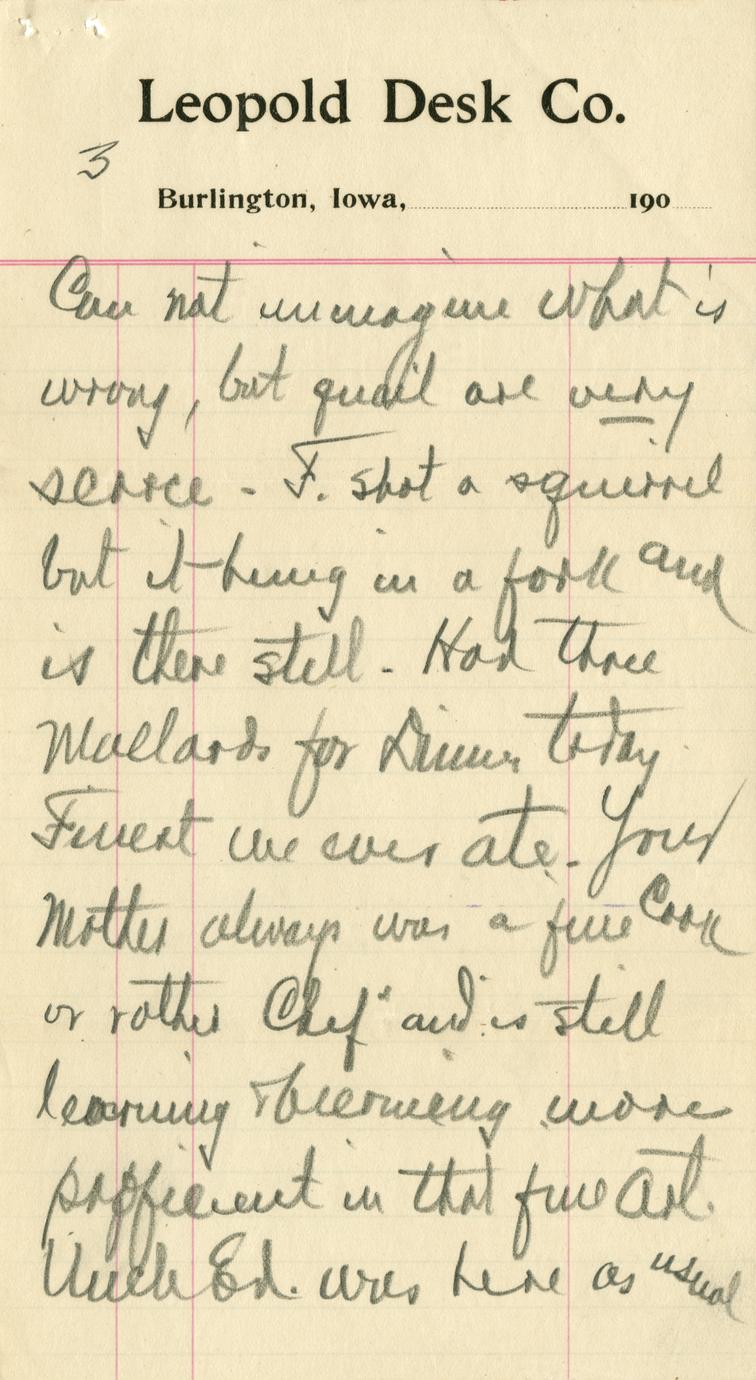 Leopold Desk Co.
3
Burlington, Iowa, 190
Can not immagine what is
wrong, but quail are very
scarce - F. shot a squirrel
but it hung in a fork and
is there still - Had three
Mallards for Dinner today
Finest we ever ate. Your
Mother always was a fine Cook
or rather Chef" and is still
learning & becoming more
profficient in that fine Art.
Uncle Ed. was here as usual